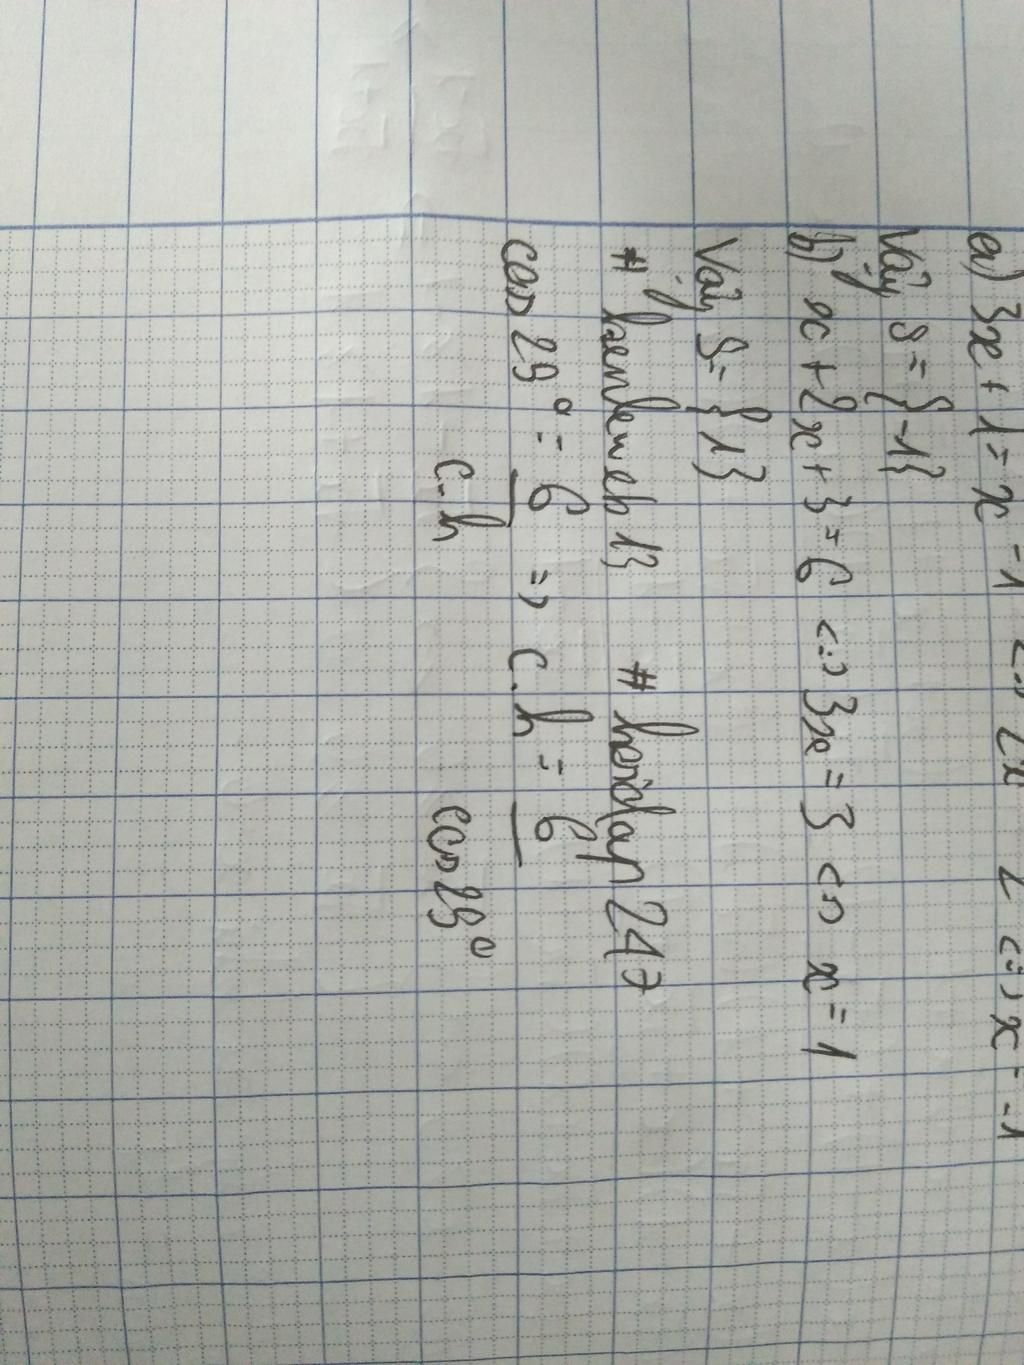 a) 3x + 1 = x - 1 <=> 2x = -2 <=> x = -1
Vậy S = {-1}
b) x + 2x + 3 = 6 <=> 3x = 3 <=> x = 1
Vậy S = {1}
# 13 # hoidap247
cos 29° = 6/c.h => c.h = 6/cos29°